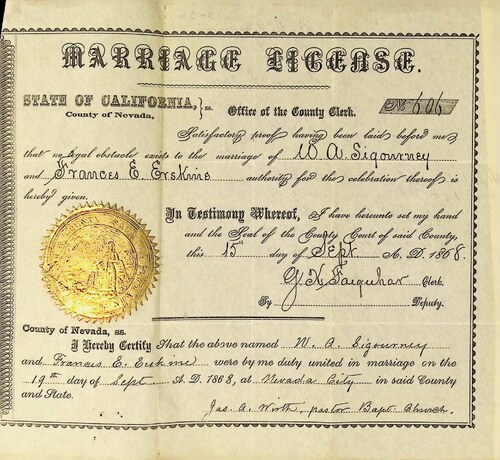 MARRIAGE LICENSE.
STATE OF CALIFORNIA, } ss. Office of the County Clerk. No 606
County of Nevada,
Satisfactory proof having been laid before me,
that no legal obstacle exists to the marriage of W. A. Sigourney
and Frances E. Erskine authority for the celebration thereof is
hereby given.
In Testimony Whereof, I have hereunto set my hand
and the Seal of the County Court of said County,
this 15th day of Sept A. D. 1868.
G. K. Farquhar Clerk.
By Deputy.
County of Nevada, ss.
I Hereby Certify That the above named W. A. Sigourney
and Frances E. Erskine were by me duly united in marriage on the
19th day of Sept A. D. 1868, at Nevada City in said County
and State.
Jas. A. Wirth, pastor Bapt. Church.